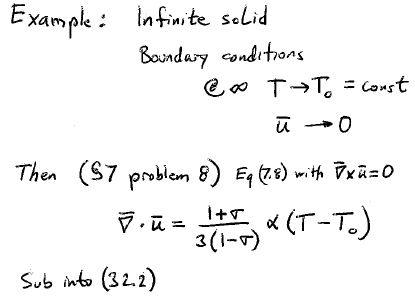 Example: Infinite solid
Boundary conditions
@ ∞ T → T₀ = const
ū → 0
Then (§7 problem 8) Eq (7.8) with ∇̄×ū=0
∇̄·ū = (1+σ)/(3(1-σ)) α (T-T₀)
Sub into (32.2)